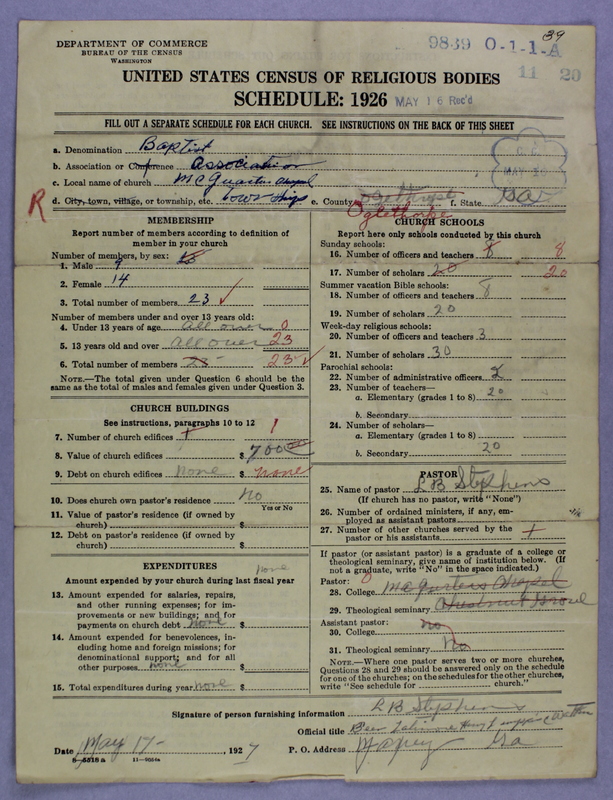 39
DEPARTMENT OF COMMERCE
BUREAU OF THE CENSUS
WASHINGTON
9839 0-1-1-A
11 20
UNITED STATES CENSUS OF RELIGIOUS BODIES
SCHEDULE: 1926 MAY 16 Rec'd
FILL OUT A SEPARATE SCHEDULE FOR EACH CHURCH. SEE INSTRUCTIONS ON THE BACK OF THIS SHEET
a. Denomination Baptist
b. Association or Conference Association
c. Local name of church McQuarters Chapel
d. City, town, village, or township, etc. e. County Oglethorpe f. State Ga
R
MEMBERSHIP
Report number of members according to definition of
member in your church
Number of members, by sex:
1. Male 9
2. Female 14
3. Total number of members 23 ✓
Number of members under and over 13 years old:
4. Under 13 years of age all over 0
5. 13 years old and over all over 23
6. Total number of members 23 23 ✓
NOTE.—The total given under Question 6 should be the
same as the total of males and females given under Question 3.
CHURCH BUILDINGS
See instructions, paragraphs 10 to 12
7. Number of church edifices 1
8. Value of church edifices $ 700.00
9. Debt on church edifices None $ none
10. Does church own pastor's residence No
Yes or No
11. Value of pastor's residence (if owned by
church) $
12. Debt on pastor's residence (if owned by
church) $
EXPENDITURES none
Amount expended by your church during last fiscal year
13. Amount expended for salaries, repairs,
and other running expenses; for im-
provements or new buildings; and for
payments on church debt none $
14. Amount expended for benevolences, in-
cluding home and foreign missions; for
denominational support; and for all
other purposes none $
15. Total expenditures during year none $
CHURCH SCHOOLS
Report here only schools conducted by this church
Sunday schools:
16. Number of officers and teachers 8 8
17. Number of scholars 20 20
Summer vacation Bible schools:
18. Number of officers and teachers 8
19. Number of scholars 20
Week-day religious schools:
20. Number of officers and teachers 3
21. Number of scholars 30
Parochial schools:
22. Number of administrative officers 2
23. Number of teachers—
a. Elementary (grades 1 to 8) 20
b. Secondary
24. Number of scholars—
a. Elementary (grades 1 to 8)
b. Secondary 20
PASTOR
25. Name of pastor L B Stephens
(If church has no pastor, write "None")
26. Number of ordained ministers, if any, em-
ployed as assistant pastors
27. Number of other churches served by the
pastor or his assistants
If pastor (or assistant pastor) is a graduate of a college or
theological seminary, give name of institution below. (If
not a graduate, write "No" in the space indicated.)
Pastor: 0
28. College McQuarters Chapel
29. Theological seminary Chestnut Grove
Assistant pastor:
30. College No
31. Theological seminary No
NOTE.—Where one pastor serves two or more churches,
Questions 28 and 29 should be answered only on the schedule
for one of the churches; on the schedules for the other churches,
write "See schedule for church."
Signature of person furnishing information L B Stephens
Official title
Date May 17-, 1927 P. O. Address Ga
8-5518 a 11-9604a